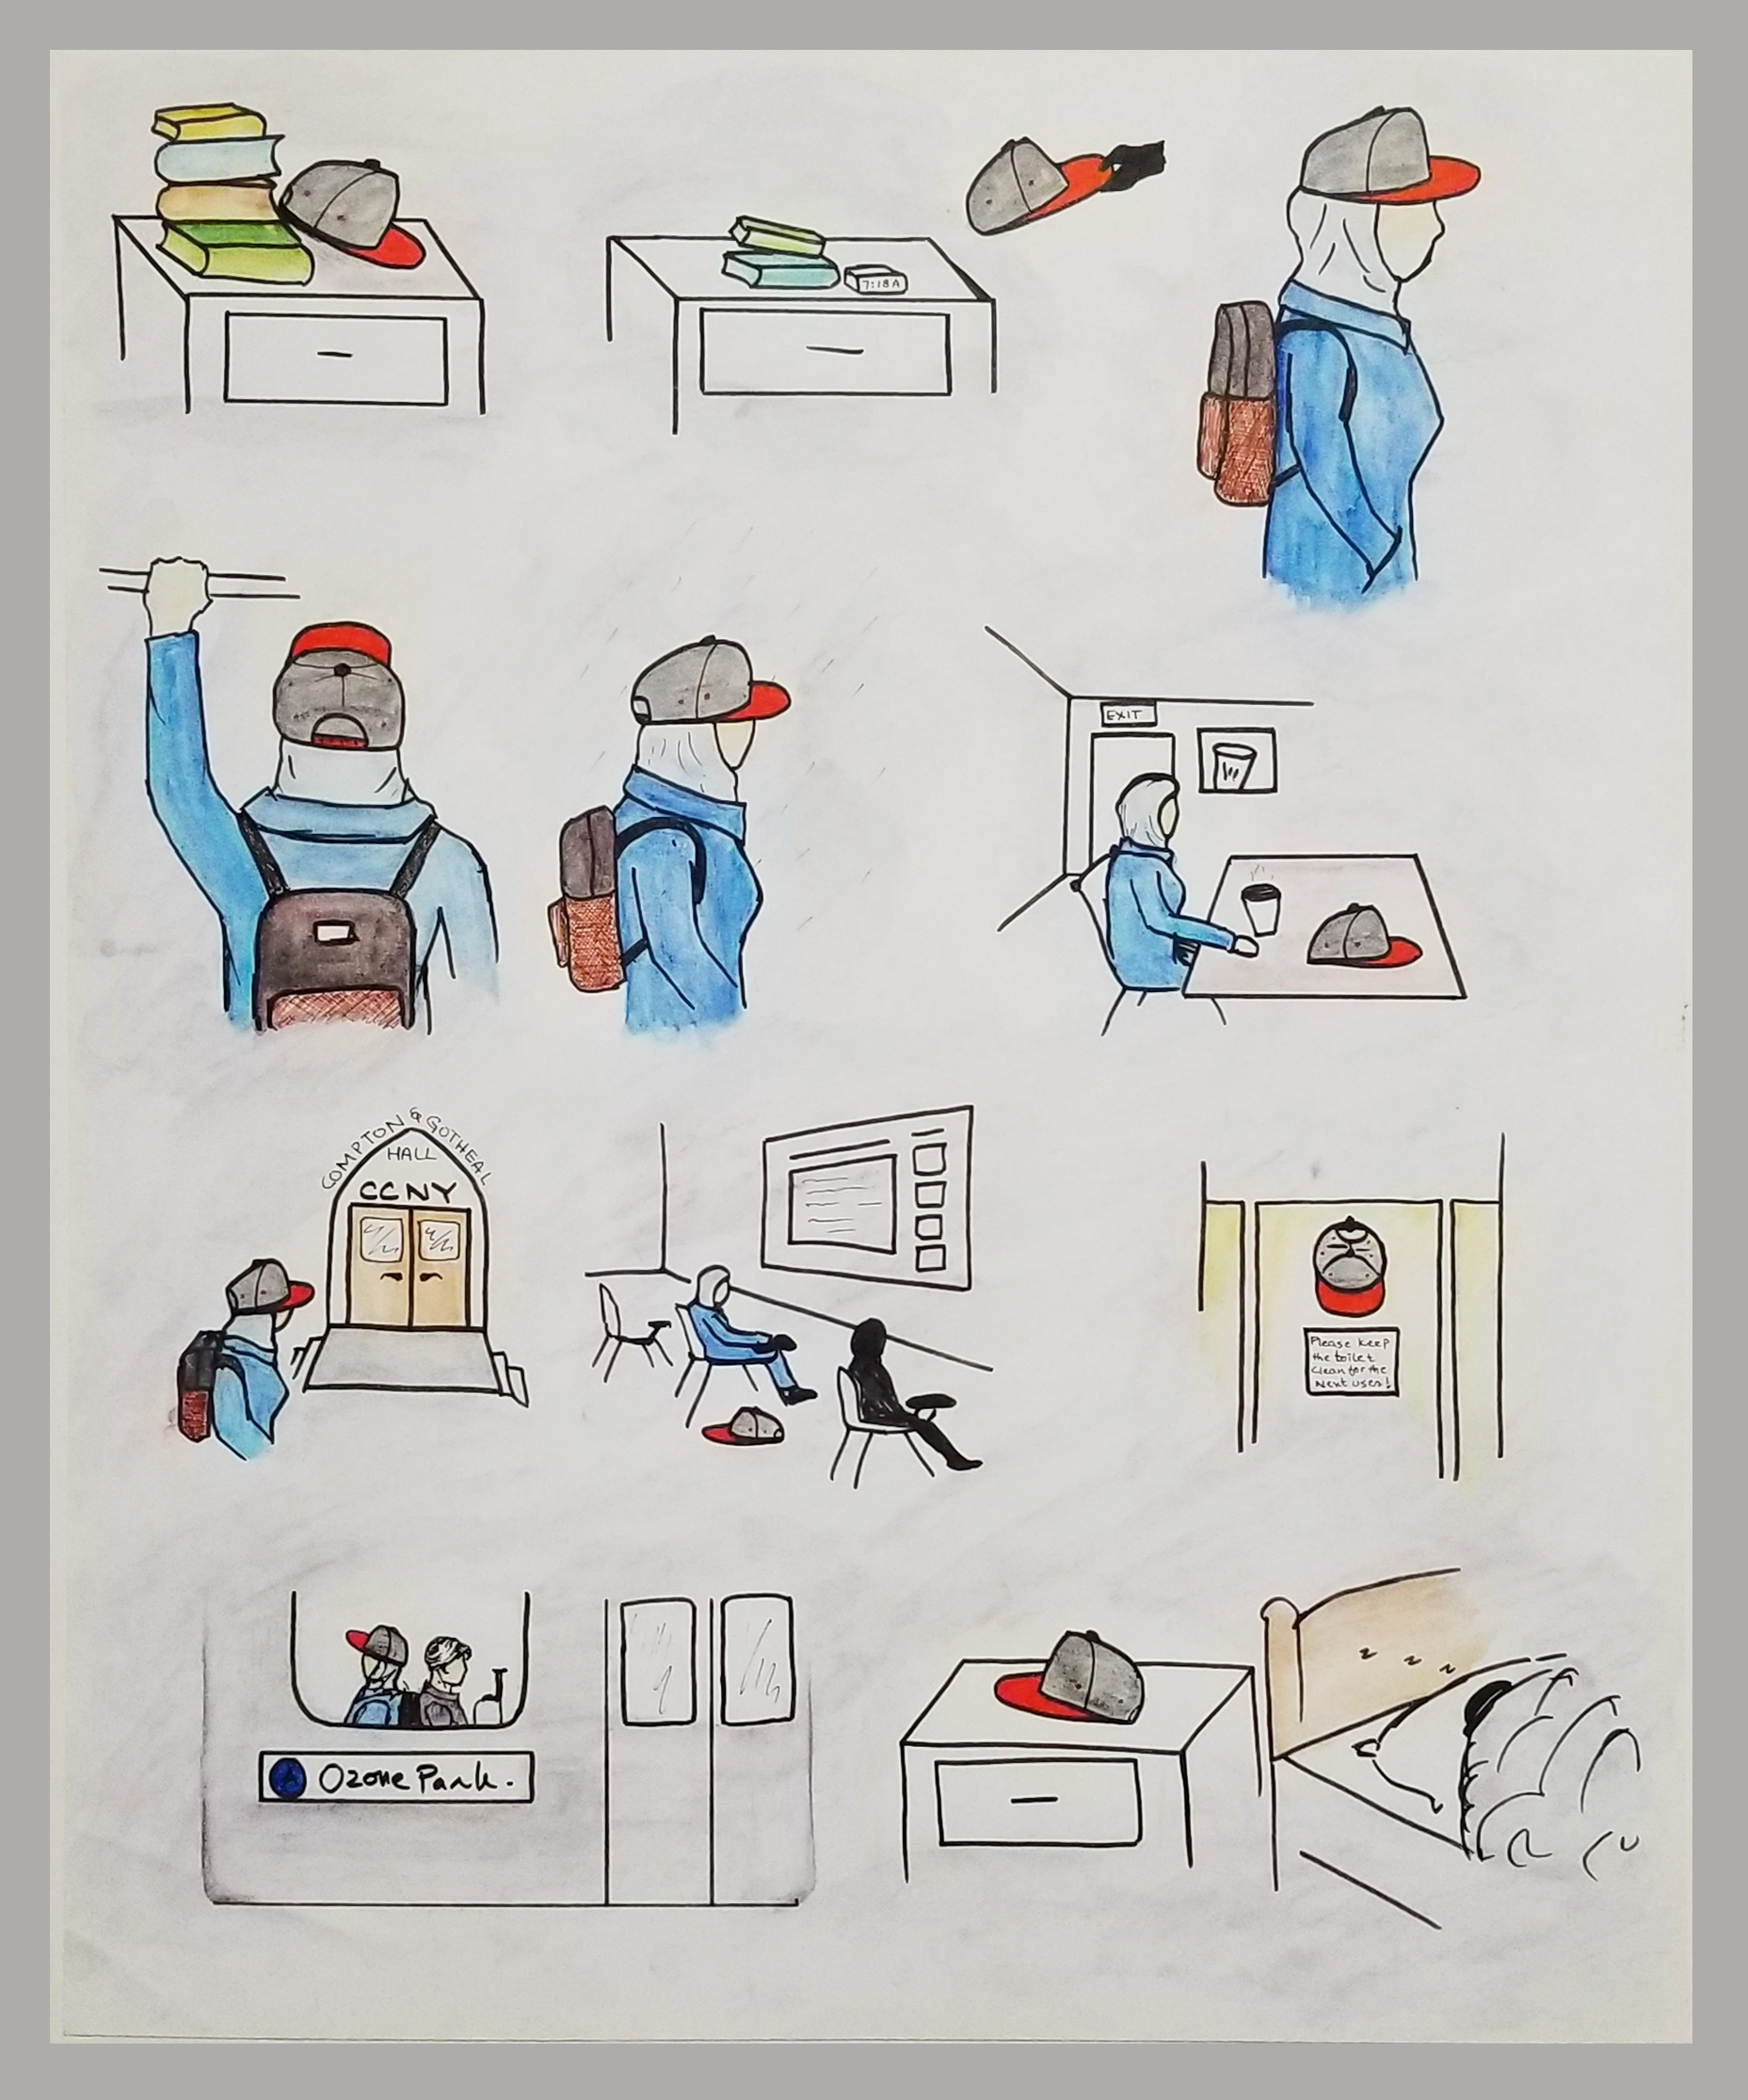 7:18A
EXIT
COMPTON & GOTHEAL
HALL
CCNY
Please keep
the toilet
clean for the
Next user!
A Ozone Park.
z z z